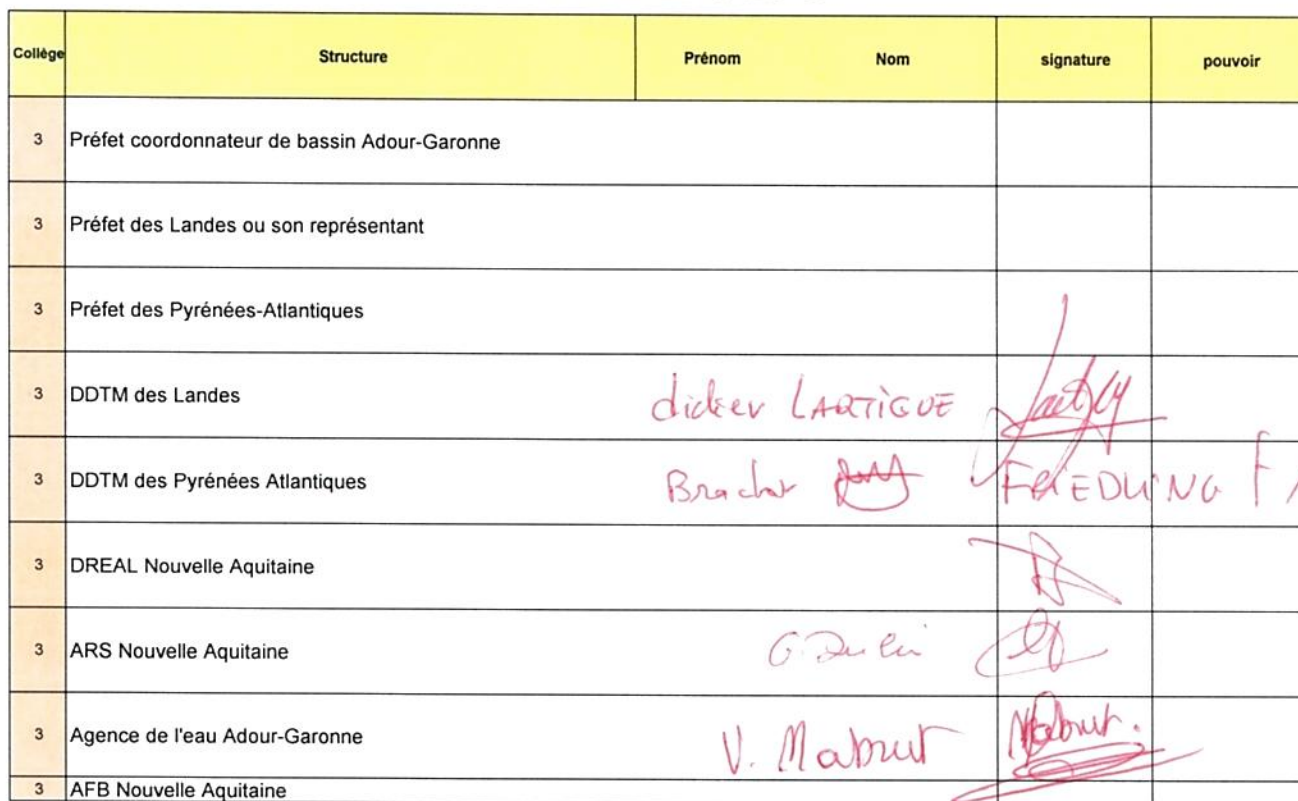 Collège Structure Prénom Nom signature pouvoir
3 Préfet coordonnateur de bassin Adour-Garonne
3 Préfet des Landes ou son représentant
3 Préfet des Pyrénées-Atlantiques
3 DDTM des Landes didier LARTIGUE
3 DDTM des Pyrénées Atlantiques FRIEDLING
3 DREAL Nouvelle Aquitaine
3 ARS Nouvelle Aquitaine
3 Agence de l'eau Adour-Garonne V. Mabrut Mabrut.
3 AFB Nouvelle Aquitaine